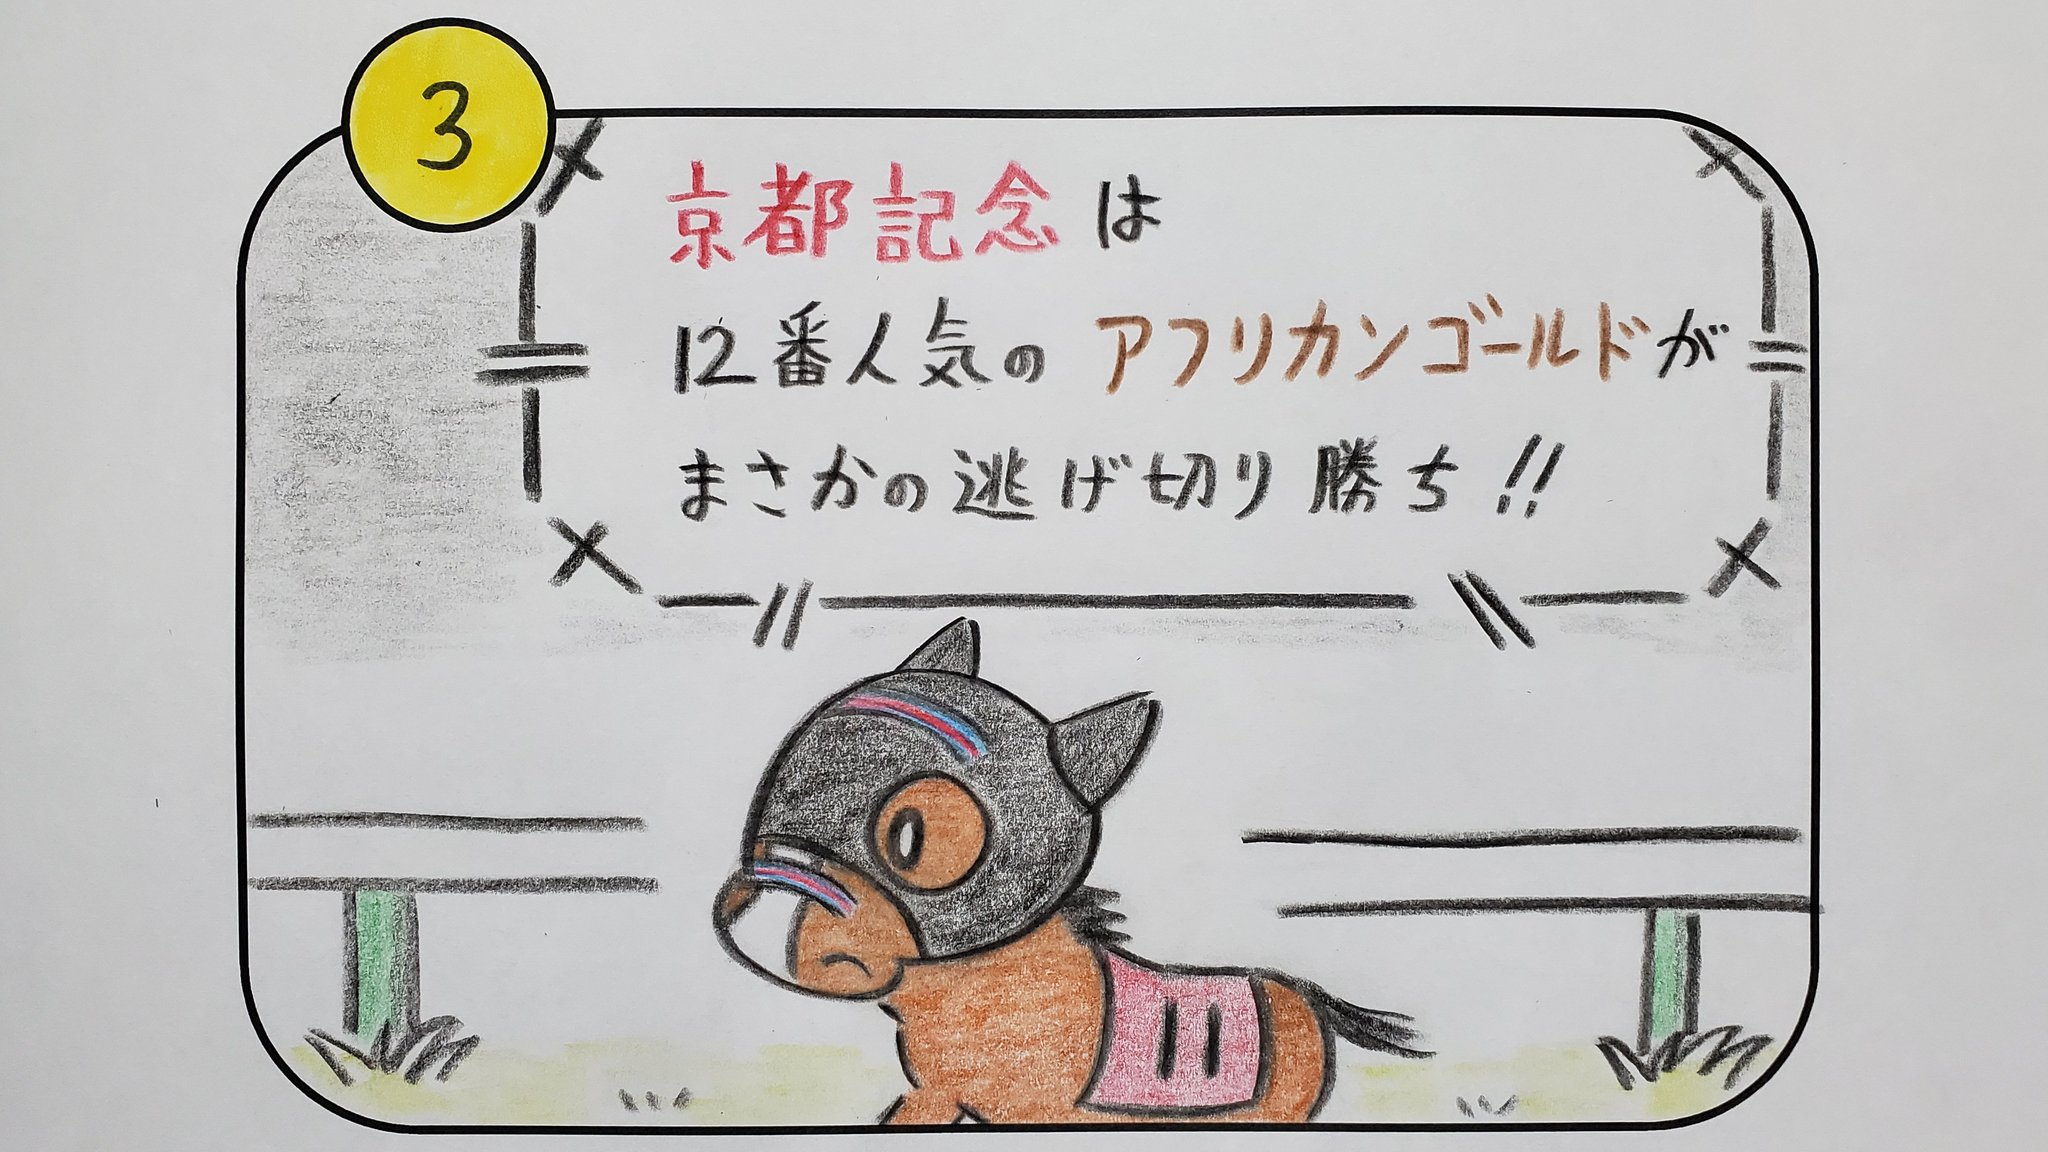 3
京都記念は
12番人気のアフリカンゴールドが
まさかの逃げ切り勝ち!!
11